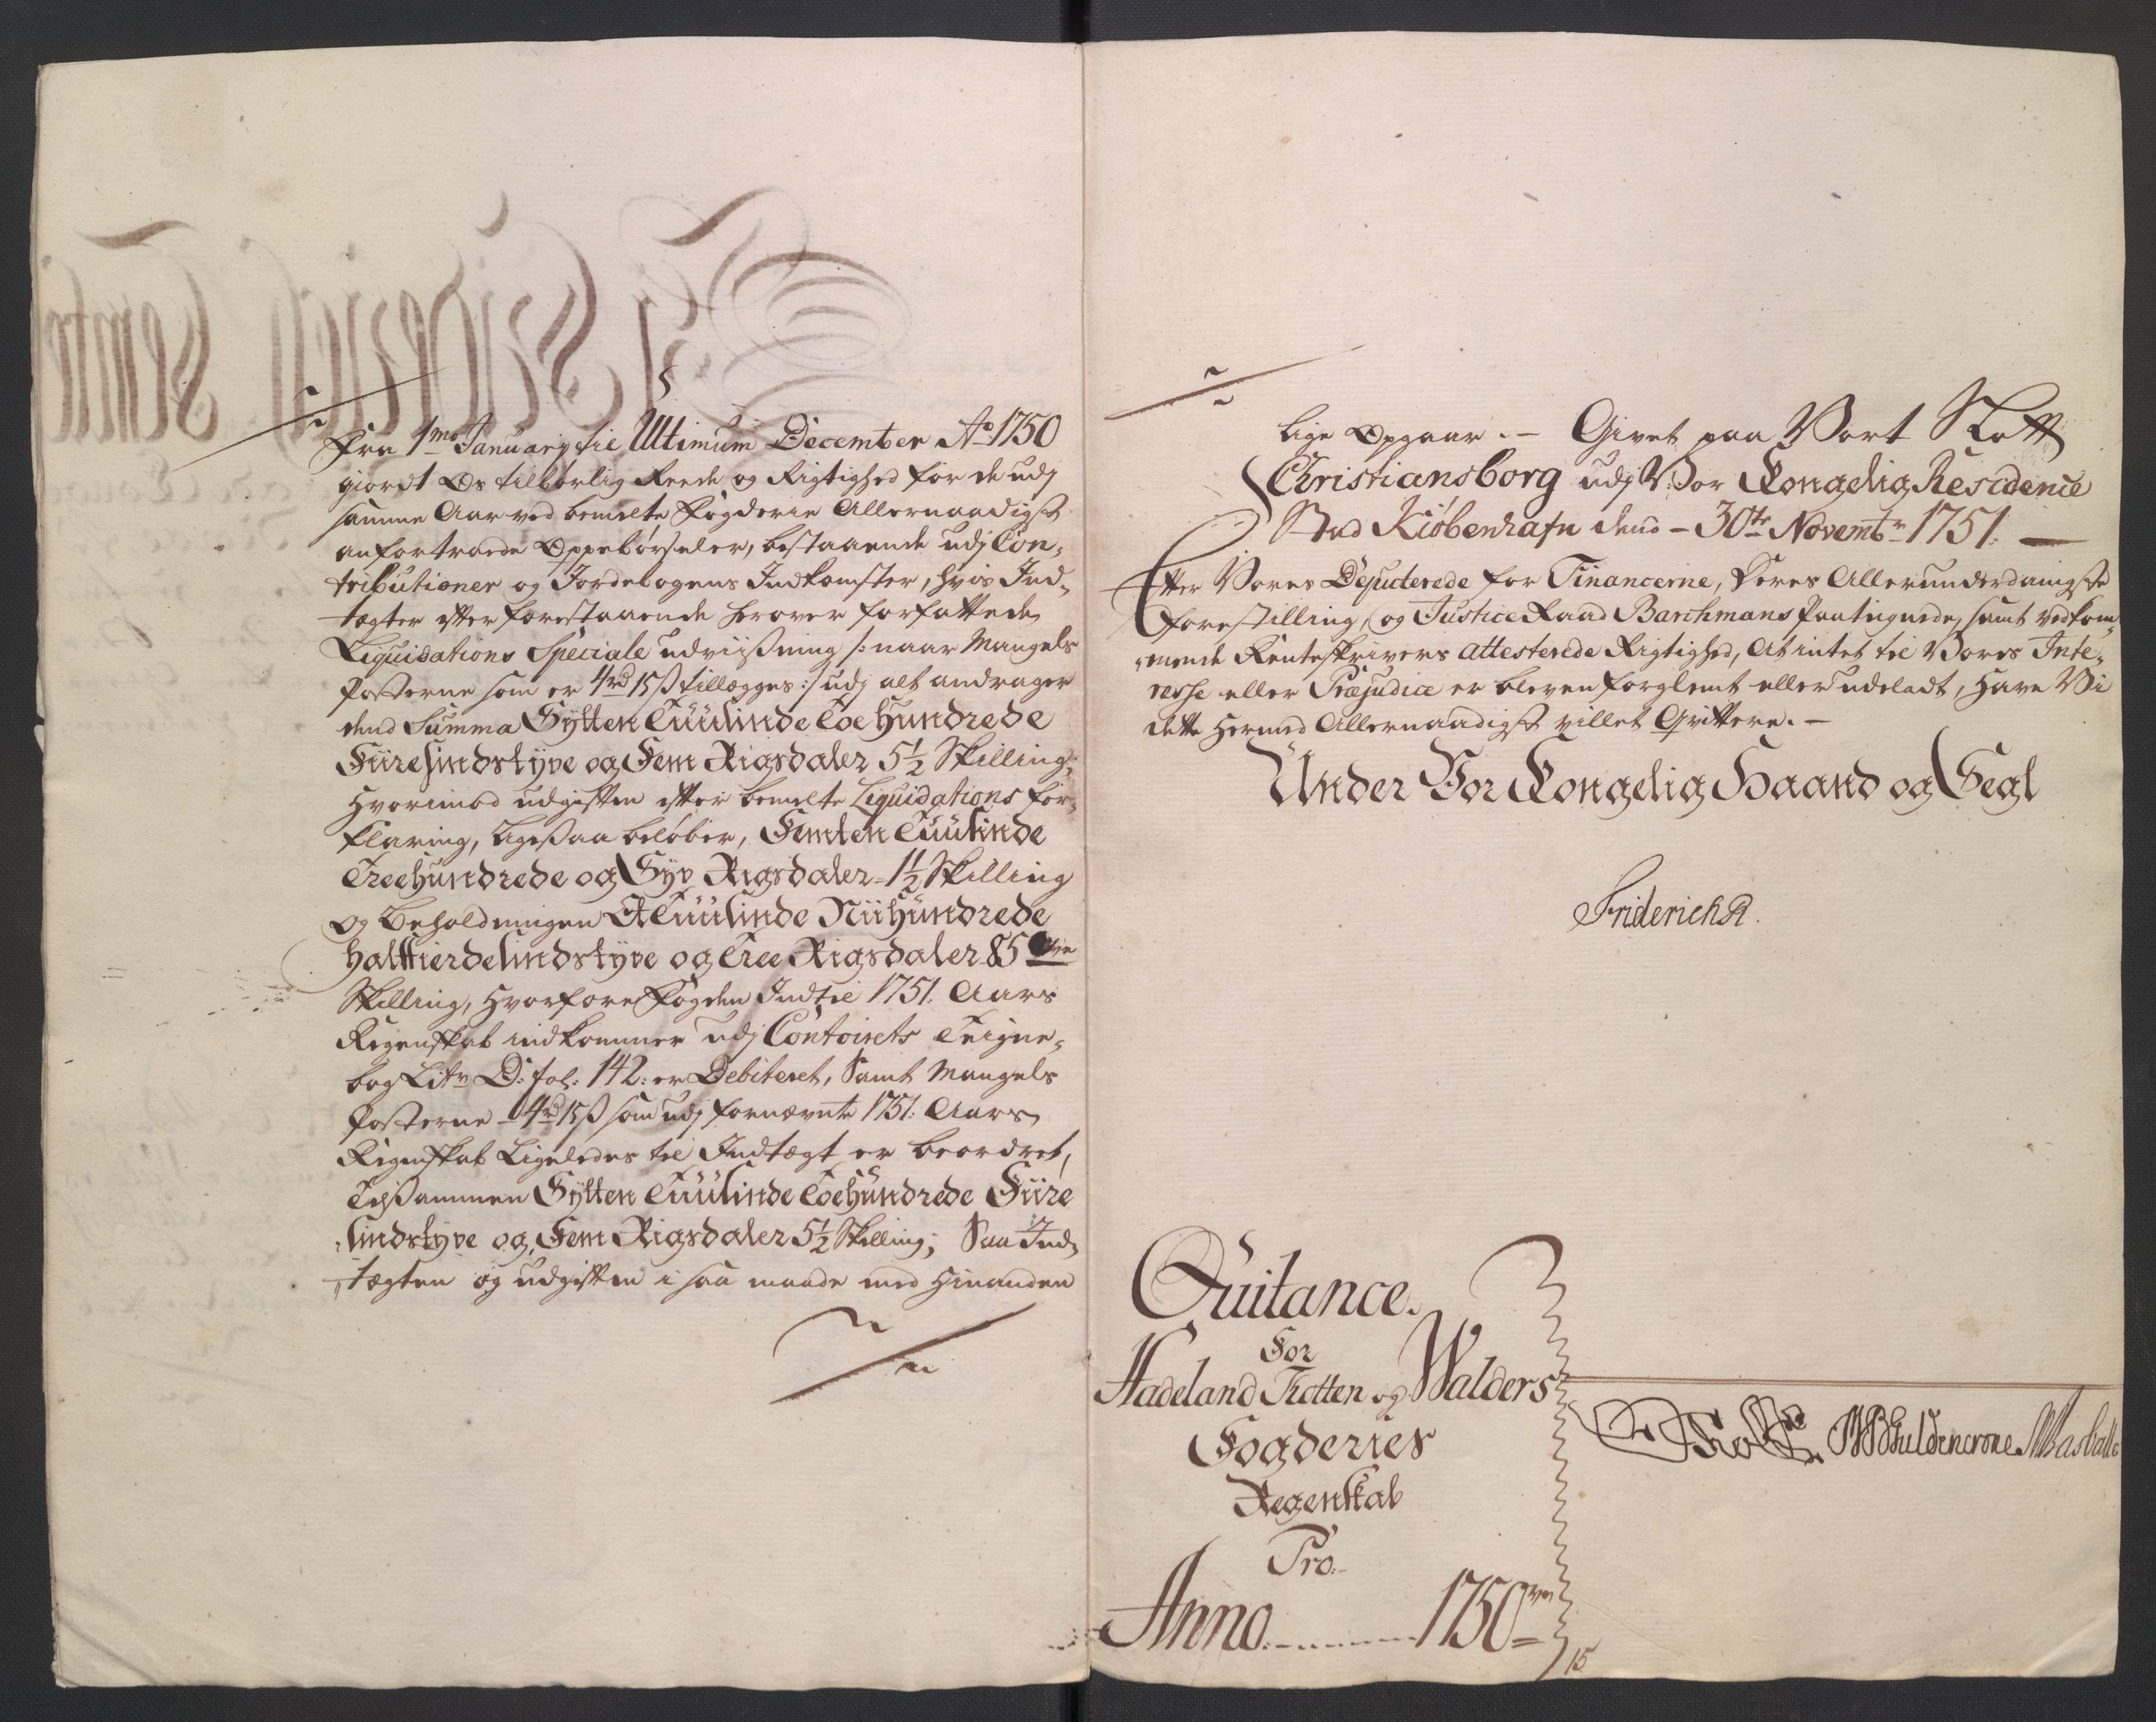 Fra 1mo January til Ultimum December Ao 1750
giordt Os tilbørlig Reede og Rigtighed for de udj
samme Aar ved bemelte Fogderie Allernaadigst
anfortroede Oppebørseler, bestaaende udj Con-
tributioner og Jordebogens Indkomster, hvis Ind-
tægter efter forestaaende herover forfattede
Liquidations Speciale udviisning /: naar Mangels
Posterne som er 4rd 15ß tillægges :/ udj alt andrager
dend Summa Sytten Tuusinde Toe Hundrede
Fiiresindstyve og Fem Rigsdaler 5½ Skilling;
Hvorimod udgiften efter bemelte Liquidations for-
klaring, Ligesaa beløber, Femten Tuusinde
Treehundrede og Syv Rigsdaler 1½ Skilling
og Beholdningen Et Tuusinde Nii Hundrede
halffierdesindstyve og Tree Rigsdaler 85
Skilling, Hvorfore Fogden Indtil 1751. Aars
Regenskab indkommer udj Contoirets Teigne-
bog Litr D: fol: 142: er Debiteret, Samt Mangels
Posterne 4rd 15ß som udj fornævnte 1751. Aars
Regenskab Ligeledes til Indtægt er beordret,
Tilsammen Sytten Tuusinde Toehundrede Fiire
sindstyve og Fem Rigsdaler 5½ Skilling; Saa Ind-
tægten og udgiften i saa maade med Hinanden
lige Opgaar. – Givet paa Vort Slott
Christiansborg udj Vor Kongelig Residence
Stad Kiøbenhafn dend – 30te Novembr 1751.
Efter Vores Deputerede for Financerne, Deres Allerunderdanigste
forestilling, og Justice Raad Barchmans Paategnede, samt vedkom-
mende Renteskrivers attesterede Rigtighed, At intet til Vores Inte-
resse eller Præjudice er bleven forglemt eller udeladt, Have Vi
dette Hermed Allernaadigst villet Qvittere. –
Under Vor Kongelig Haand og Segl
Friderich R.
Quitance.
For
Hadeland Totten og Walders
Fogderies
Regenskab
Pro.
Anno 1750
15